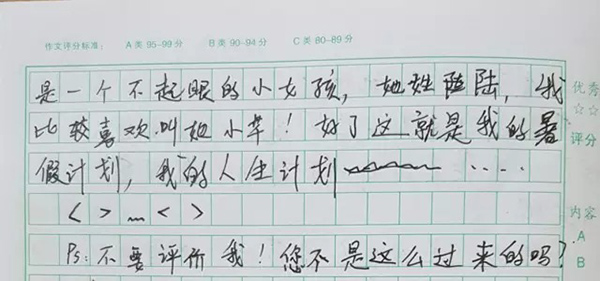 作文评分标准： A类 95-99分 B类 90-94分 C类 80-89分
是一个不起眼的小女孩，她姓陆，我
优秀
☆☆
比较喜欢叫她小芊！好了这就是我的暑
评分
假计划，我的人生计划 ····
内容
< > … < >
A
Ps：不要评价我！您不是这么过来的吗？
B